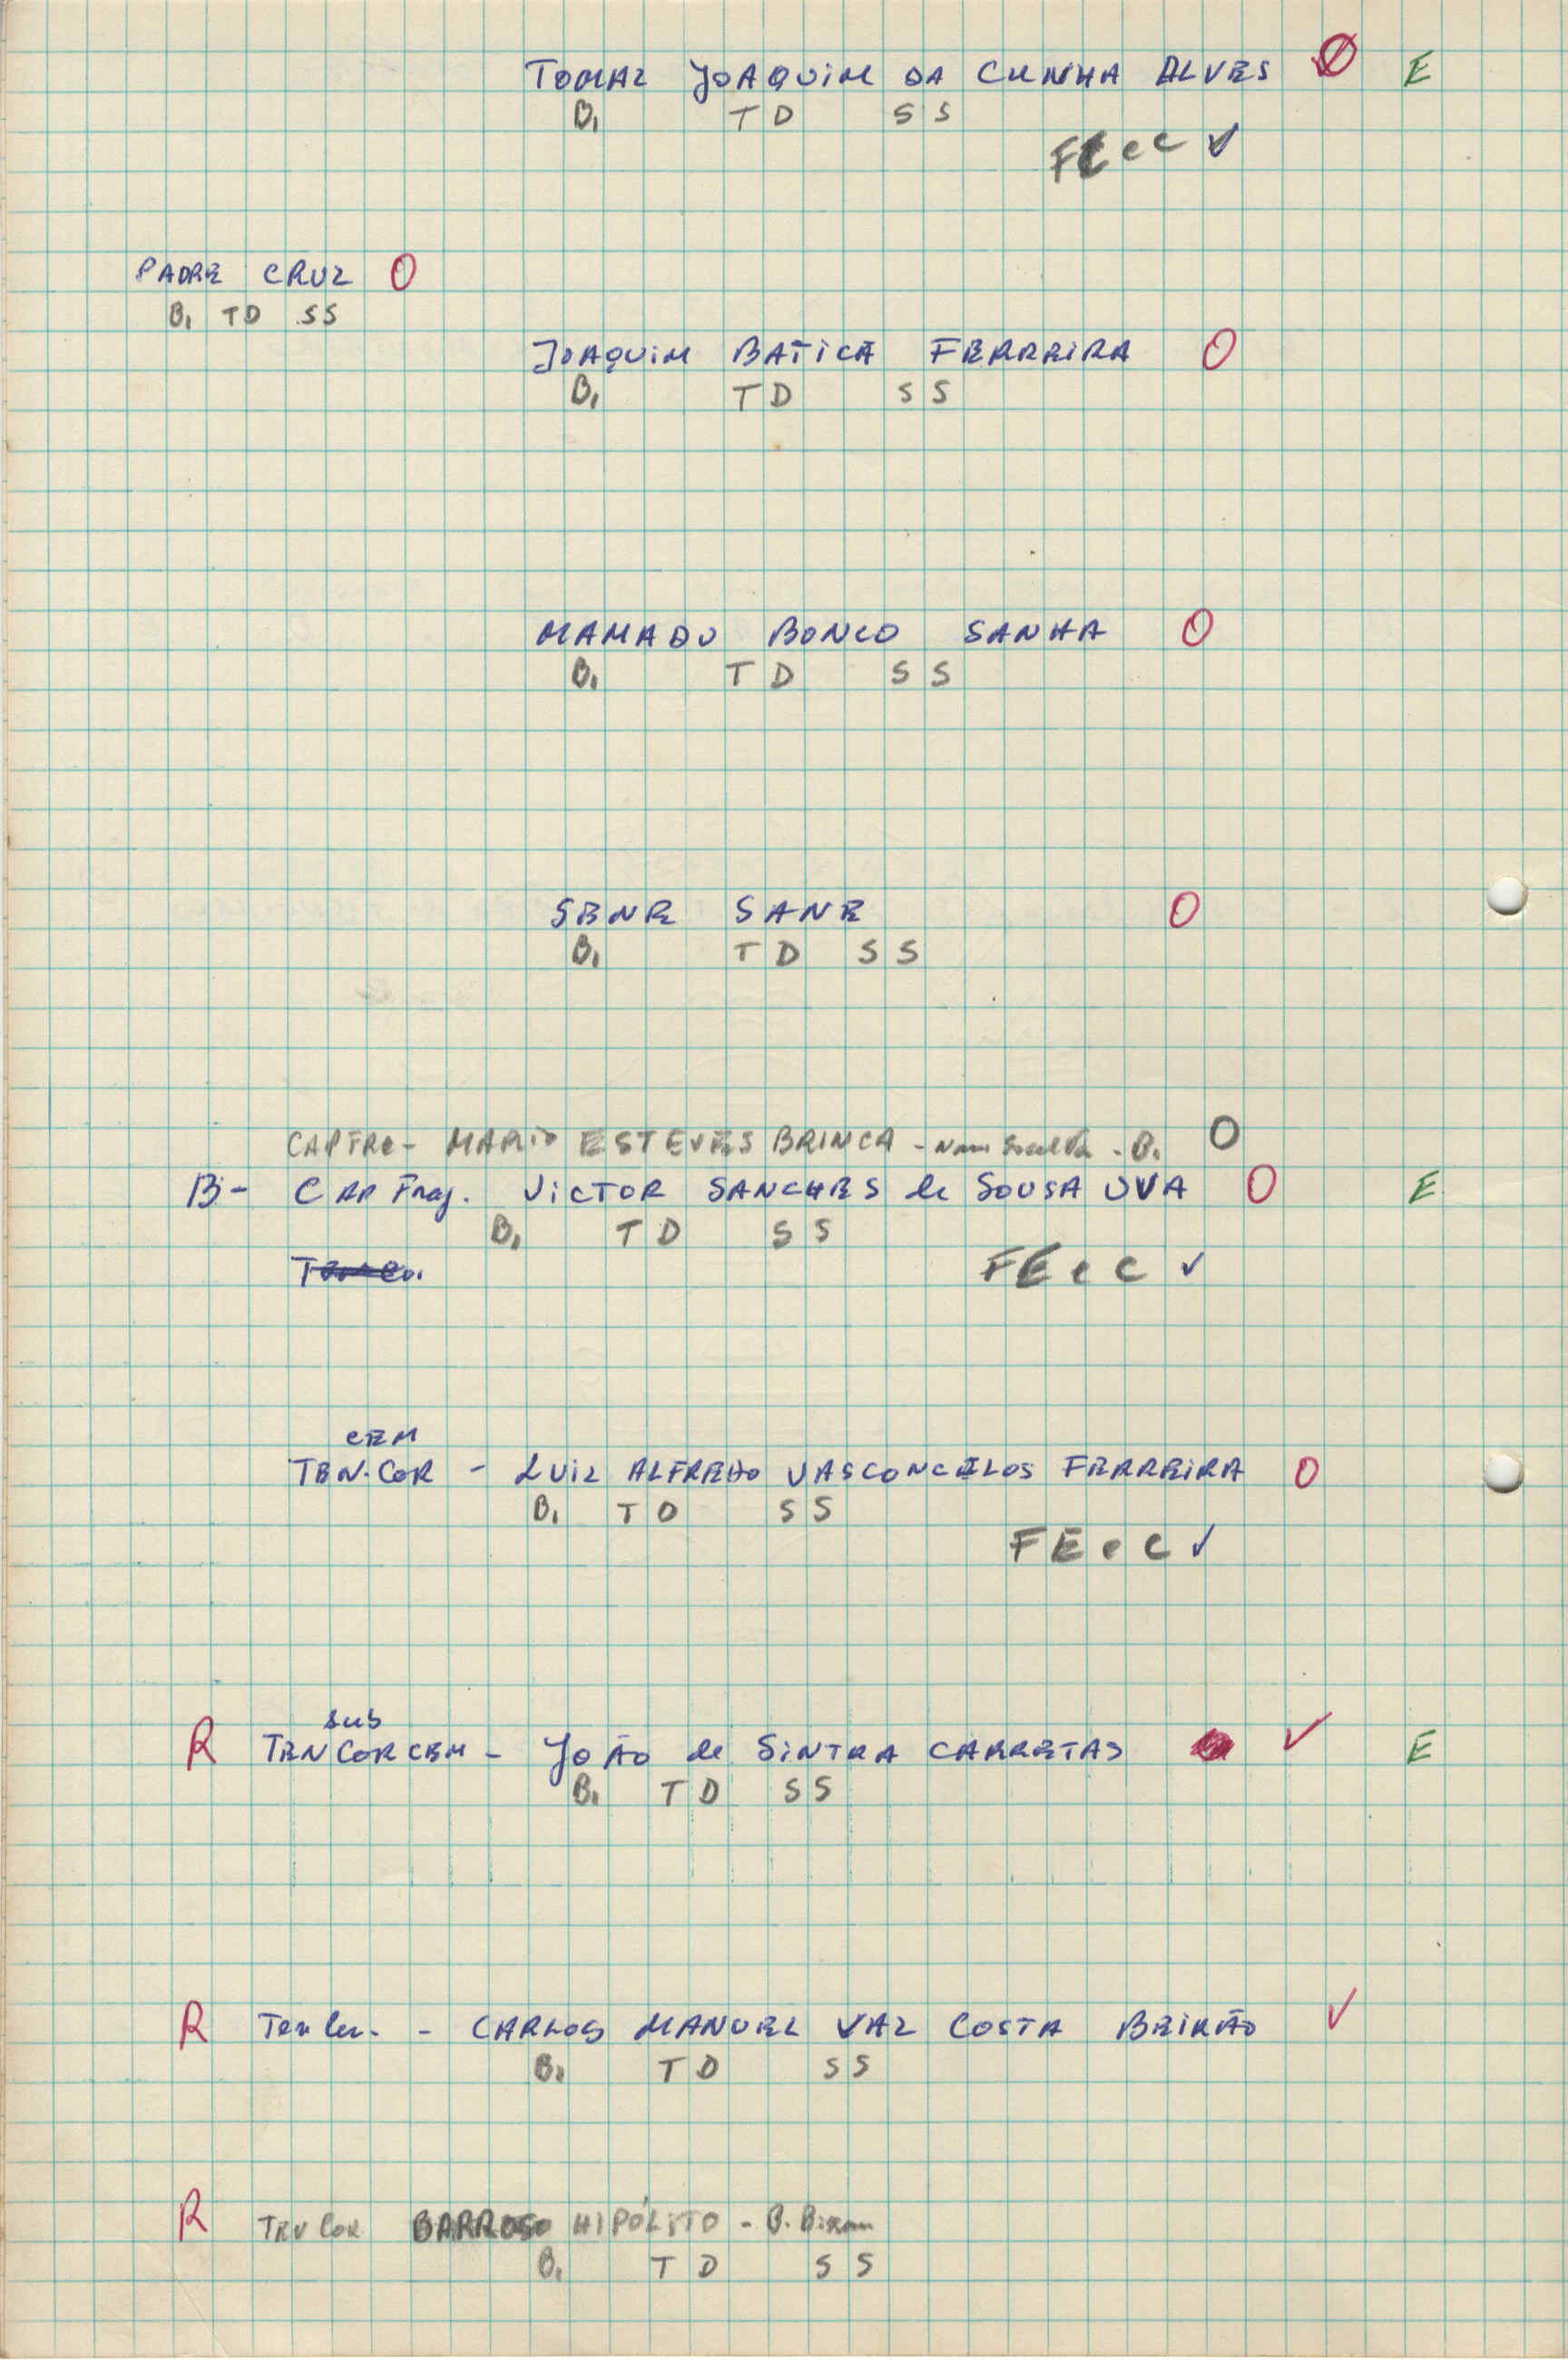 TOMAZ JOAQUIM DA CUNHA ALVES O E
B. T D S S
FE e C ✓
PADRE CRUZ O
B. T D S S
JOAQUIM BATICÃ FERREIRA O
B. T D S S
MAMADU BONCO SANHA O
B. T D S S
SENE SANE O
B. T D S S
CAP FRG - MARIO ESTEVES BRINCA - B. O
B - CAP Frag. VICTOR SANCHES de SOUSA UVA O E
B. T D S S
FE e C ✓
CEM
TEN. COR - LUIZ ALFREDO VASCONCELOS FERREIRA O
B. T D S S
FE e C ✓
sub
R TEN COR CEM - JOÃO de SINTRA CARRETAS ✓ E
B. T D S S
R Ten Cor. - CARLOS MANUEL VAZ COSTA BEIRÃO ✓
B. T D S S
R TEN COR BARROSO HIPÓLITO - B.
B. T D S S